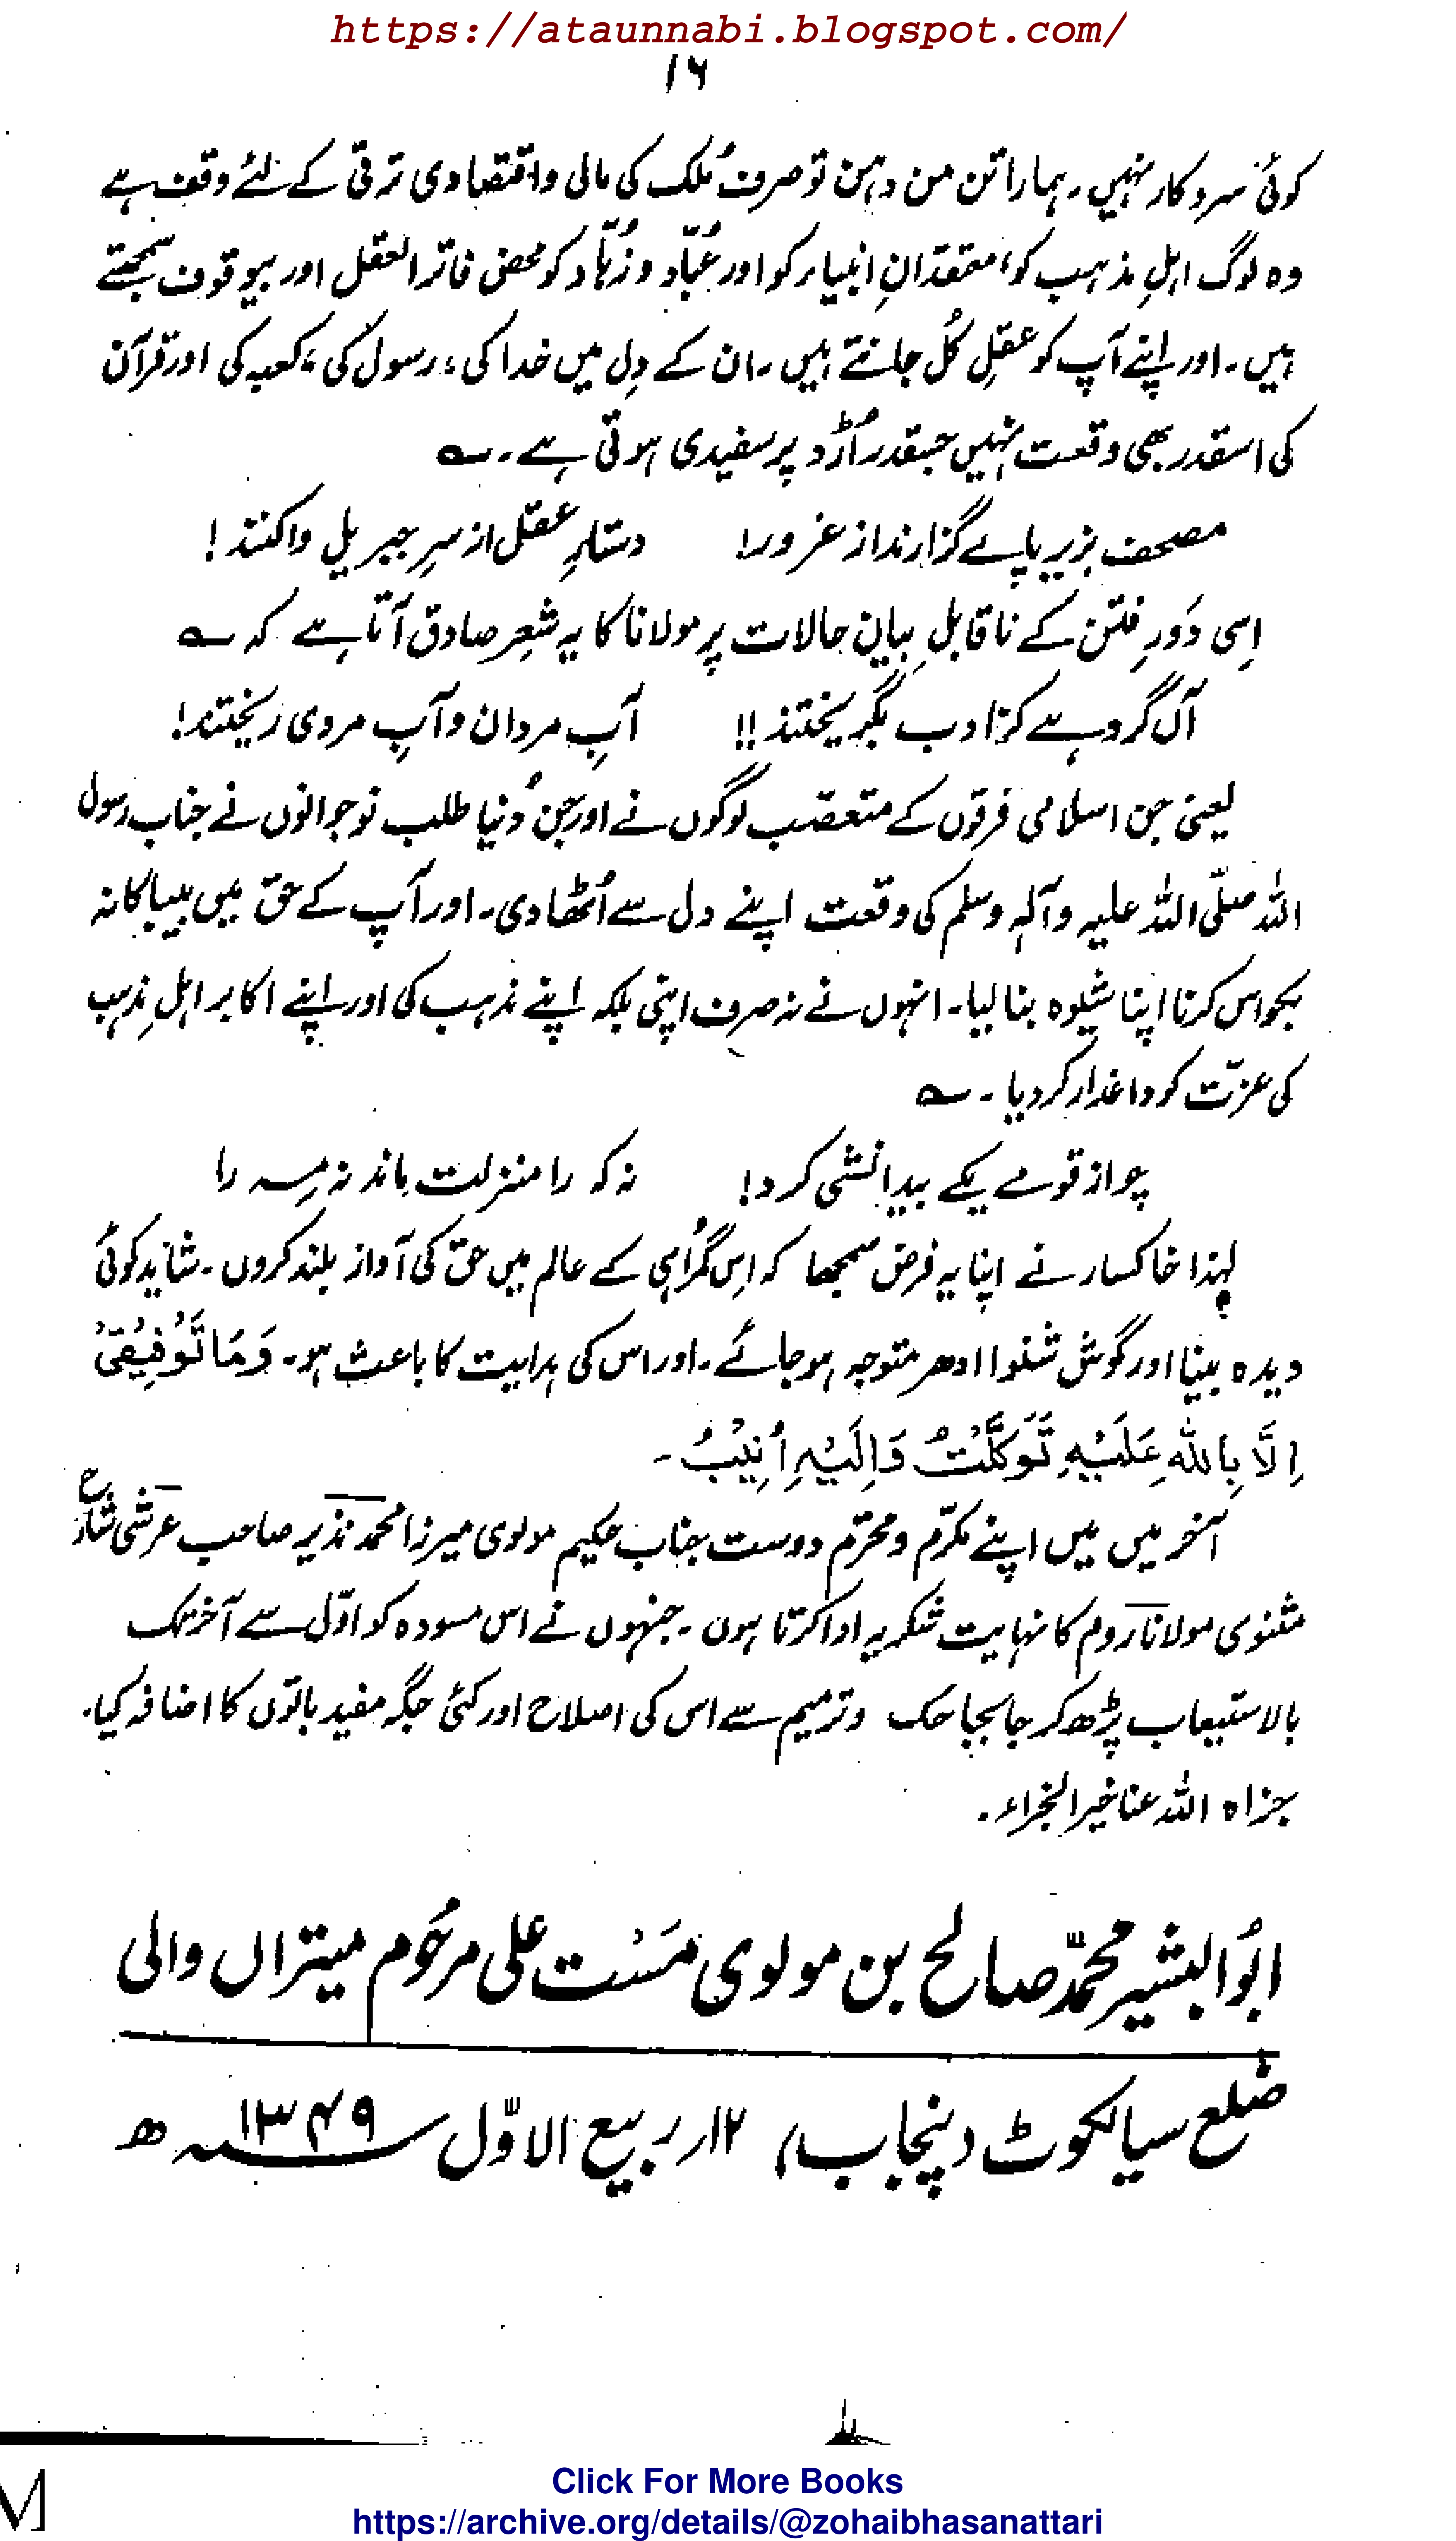 https://ataunnabi.blogspot.com/
۱۶
کوئی سروکار نہیں۔ ہمارا تن من دہن تو صرف مُلک کی مالی واقتصادی ترقی کے لئے وقف ہے
وہ لوگ اہلِ مذہب کو، معتقدانِ انبیاء کو اور عُبّاد و زُہّاد کو محض فاتر العقل اور بیوقوف سمجھتے
ہیں۔ اور اپنے آپ کو عقلِ کُل جانتے ہیں۔ ان کے دِل میں خدا کی، رسول کی، کعبہ کی اور قرآن
کی اسقدر بھی وقعت نہیں جسقدر اُڑد پر سفیدی ہوتی ہے۔ ؎
مصحف بزیر پاے گزارند از غرور! دستارِ عقل از سرِ جبریل واکنند!
اِسی دَورِ فتن کے ناقابلِ بیان حالات پر مولانا کا یہ شعر صادق آتا ہے کہ ؎
آں گروہے کز ادب بگریختند!! آبِ مردان و آبِ مردی ریختند!
یعنی جن اسلامی فرقوں کے متعصّب لوگوں نے اور جن دُنیا طلب نوجوانوں نے جناب رسول
اللہ صلّی اللہ علیہ وآلہٖ وسلم کی وقعت اپنے دل سے اُٹھا دی۔ اور آپ کے حق میں بیباکانہ
بکواس کرنا اپنا شیوہ بنا لیا۔ انہوں نے نہ صرف اپنی بلکہ اپنے مذہب کی اور اپنے اکابر اہلِ مذہب
کی عزّت کو داغدار کر دیا۔ ؎
چو از قومے یکے بیدانشی کرد! نہ کہ را منزلت ماند نہ مِہ را
لہٰذا خاکسار نے اپنا یہ فرض سمجھا کہ اِس گمراہی کے عالم میں حق کی آواز بلند کروں۔ شاید کوئی
دیدہ بینا اور گوش شنوا ادھر متوجہ ہو جائے۔ اور اس کی ہدایت کا باعث ہو۔ وَمَا تَوْفِیْقِیْ
اِلَّا بِاللّٰہِ عَلَیْہِ تَوَکَّلْتُ وَاِلَیْہِ اُنِیْبُ۔
آخر میں میں اپنے مکرّم و محترم دوست جناب حکیم مولوی میرزا محمد نذیر صاحب عرشی شارح
مثنوی مولانا روم کا نہایت شکریہ ادا کرتا ہوں۔ جنہوں نے اس مسودہ کو اوّل سے آخر تک
بالاستیعاب پڑھ کر جا بجا حک وترمیم سے اس کی اصلاح اور کئی جگہ مفید باتوں کا اضافہ کیا۔
جزاہ اللہ عنا خیر الجزاء۔
ابوُالبشیر محمدّ صالح بن مولوی مَسْت علی مرحُوم میتراں والی
ضلع سیالکوٹ (پنجاب) ۱۲؍ ربیع الاوّل ۱۳۴۹ھ
Click For More Books
https://archive.org/details/@zohaibhasanattari